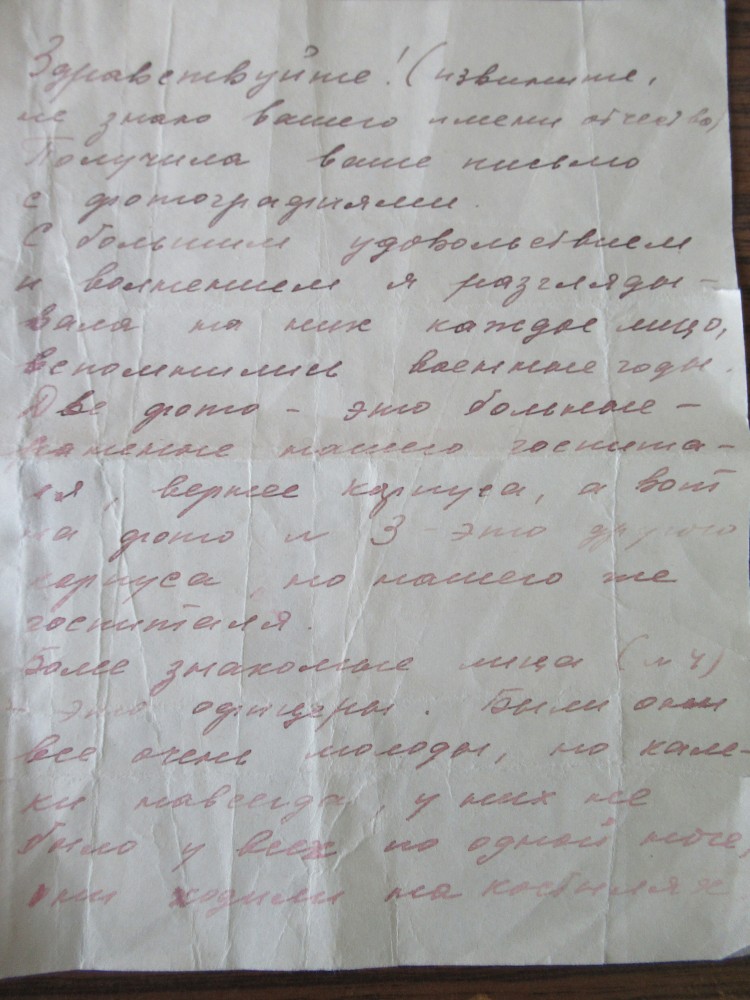 Здравствуйте! (извините,
не знаю вашего имени отчества)
Получила ваше письмо
с фотографиями.
С большим удовольствием
и волнением я разгляды-
вала на них каждое лицо,
вспомнились военные годы.
Две фото - это больные -
раненые нашего госпита-
ля, вернее корпуса, а вот
на фото н 3 - это другого
корпуса, но нашего же
госпиталя.
Более знакомые лица (н 4)
- это офицеры. Были они
все очень молоды, но кале-
ки навсегда, у них не
было у всех по одной ноге,
они ходили на костылях